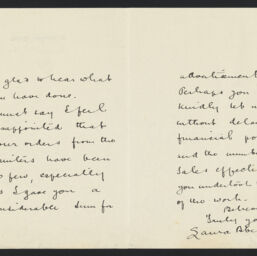 glad to hear what
you have done.
must say I feel
disappointed that
your orders from the
have been
so few, especially
as I gave you a
considerable sum for
advertisement
Perhaps you
kindly let
without delay
financial
and the number
sales effected
you undertook
of the work.
Believe
Truly yo
Laura